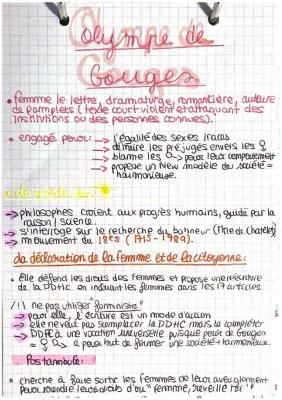 Olympe de
Gouges
• femme le lettre, dramaturge, romancière, auteure
de pamplets (texte court violent attaquant des
institutions ou des personnes connues).
• engagé pour: → l'égalité des sexes / races
→ détruire les préjugés envers les ♀
→ blame les ♂ pour leur comportement
→ propose un new modèle de société =
harmonieuse.
→ philosophes croient aux progrès humains, guidé par la
raison / science.
→ s'interroge sur le recherche du bonheur (Mme de Chatelet)
→ mouvement du 18e s (1715 - 1789).
La déclaration de la femme et de la citoyenne:
• Elle défend les droits des femmes et propose une réécriture
de la DDHC en incluant les femmes dans les 17 articles.
/!\ ne pas utiliser "féministe"
→ pour elle, l'écriture est un mode d'action
→ elle ne veut pas remplacer la DDHC mais la compléter
→ une vocation universelle puisque pour de Gouges
= ♀ a peut de former une société + harmonieuse.
Postambule:
• cherche à faire sortir les femmes de leur aveuglement
pour prendre leurs droits d'où "femme, réveille toi"!